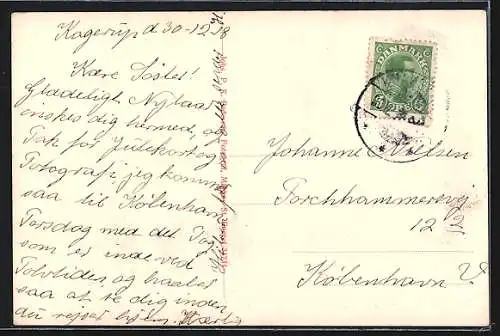 Kagerup d 30-12-18
Kære Søster!
Glædeligt Nytaar
ønskes dig hermed, og
Tak for Julekort og
Fotografi jeg kommer
saa til København
Torsdag med det Tog
som er inde ved
Tolvtiden, og haaber
saa at se dig inden
du rejser hjem.
DANMARK
Johanne Nielsen
Forchhammersvej
12
København V.